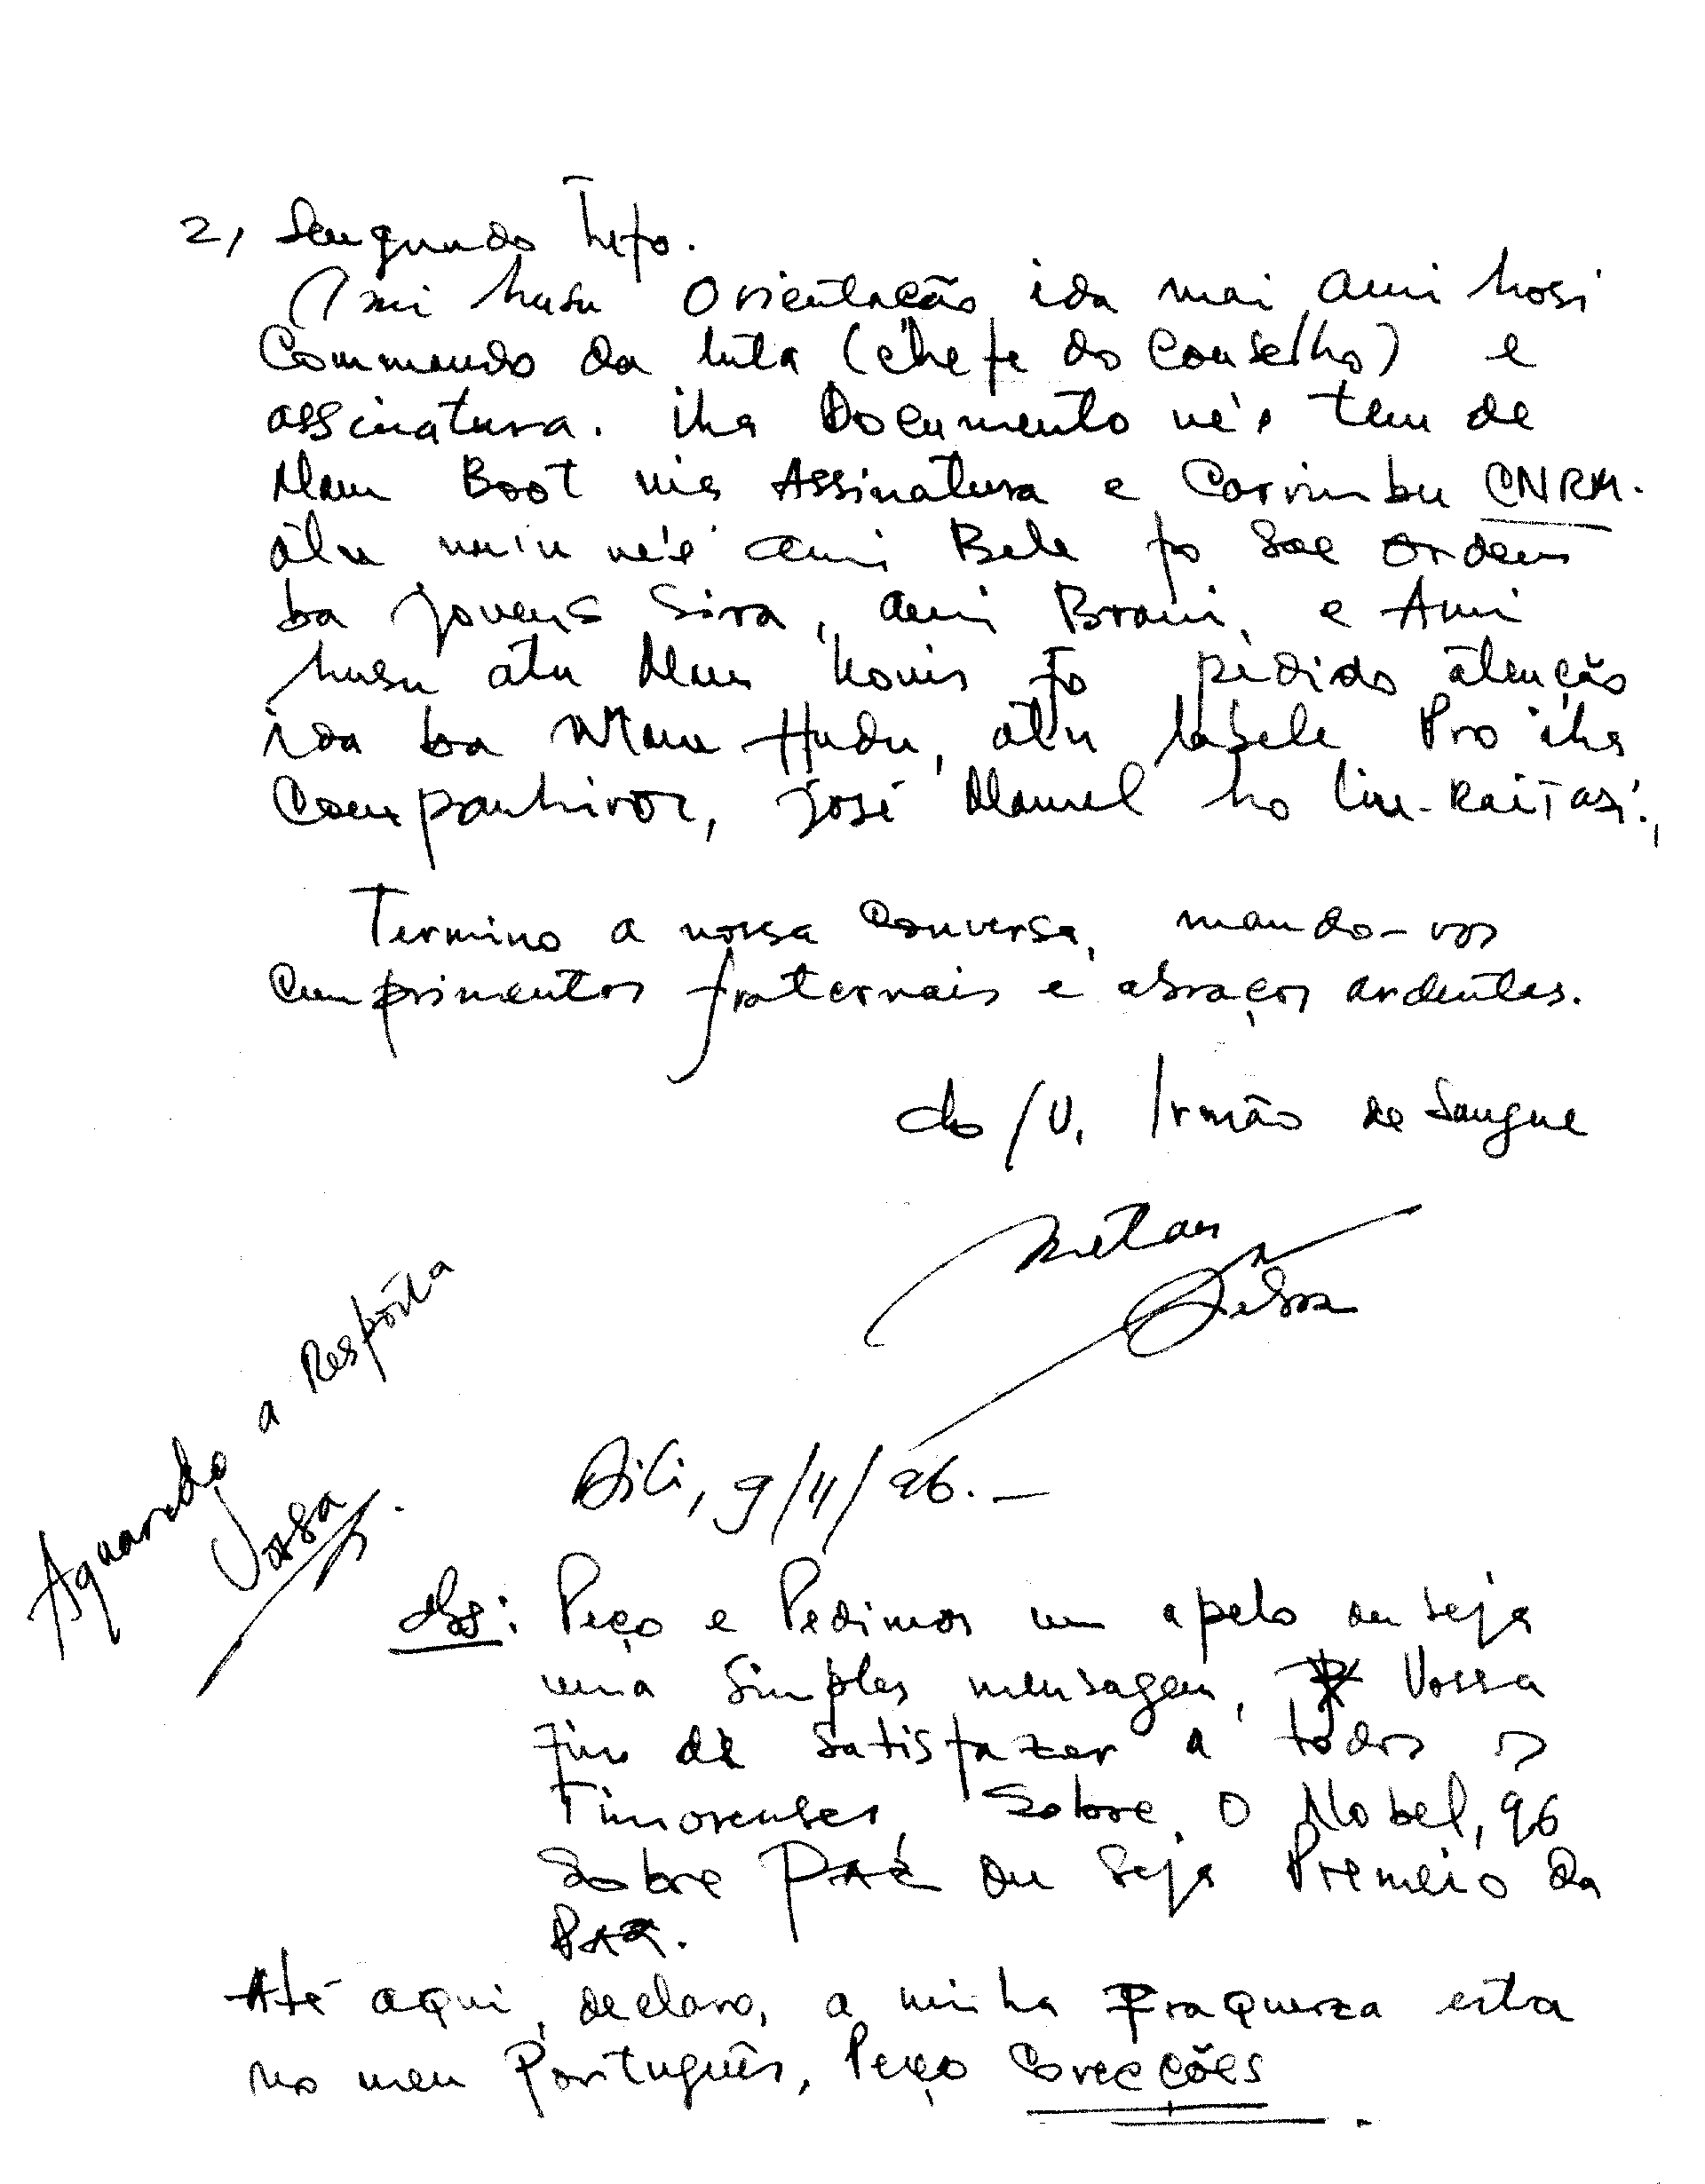 2, Seugundo
Ami husu Orientação ida mai ami hosi
Commando da luta (chefe do Conselho) e
assinatura. iha Documento né'e tem de
Maun Boot nia Assinatura e Carrimbu CNRM.
atu nu'u né'e ami Bele fo sae ordem
ba jovens Sira, ami Brani, e Ami
husu atu Maun Konis fo pédido atenção
ida ba Mau Hudu, atu labele Pro iha
Companhiros, José Manuel ho Lin-Kaitasi.,
Termino a nossa Conversa, mando-vos
Cumprimentos fraternais e abraços ardentas.
do /V. Irmão de Sangue
Aguardo a Respósta
Vossa.
Dili, 9/11/96.—
Obs: Peço e Pedimos um apelo ou seja
uma Simples mensagem, Vossa
fim de satisfazer a todos os
Timorenses, Sobre, O Nobel, 96
Sobre PAÉ ou Seja Premeio da
PAZ.
Até aqui, declaro, a minha Fraqueza esta
no meu Português, Peço Corecções.